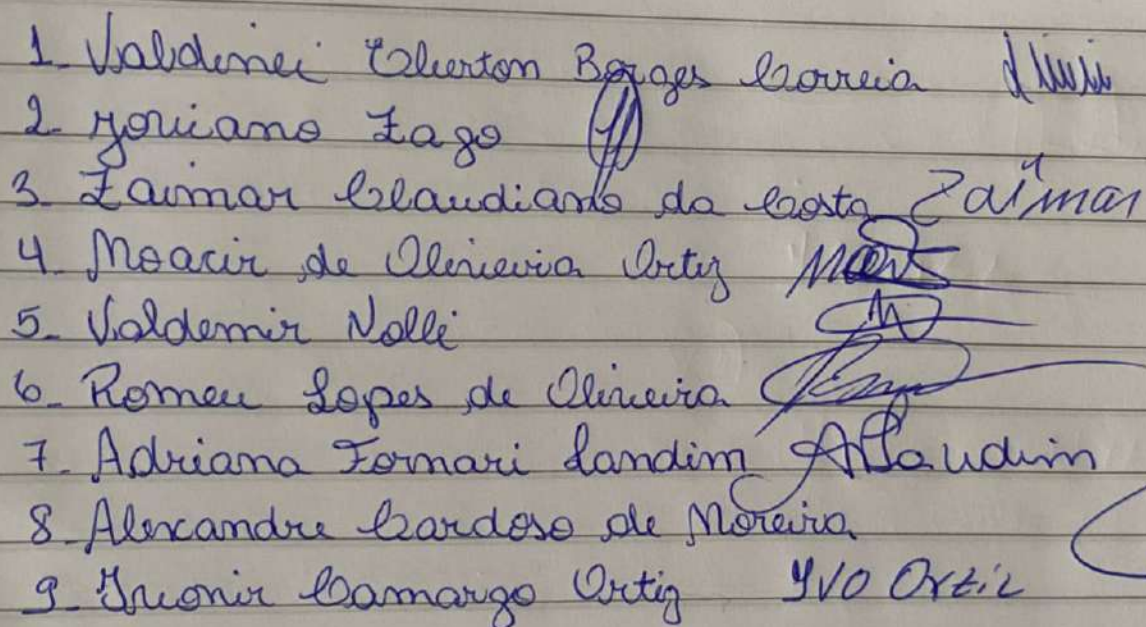 1. Valdinei Cleverton Borges Correia
2. Joriano Zago
3. Zaimar Claudiano da Costa Zaimar
4. Moacir de Olivieira Ortiz
5. Valdemir Nolli
6. Romeu Lopes de Oliveira
7. Adriana Fornari Landim ALandim
8. Alexandre Cardoso de Moreira
9. Ivonir Camargo Ortiz IVO Ortiz